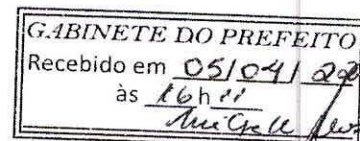 GABINETE DO PREFEITO
Recebido em 05/04/
às 16h11